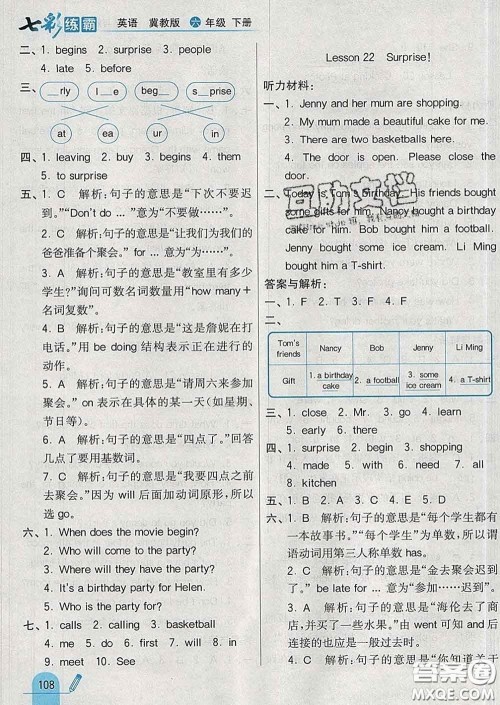 七彩练霸 英语 冀教版 六年级 下册
二、1. begins 2. surprise 3. people
4. late 5. before
三、_rly l_e beg_s s_prise
at ea ur in
四、1. leaving 2. buy 3. begins 4. them
5. to surprise
五、1. C 解析:句子的意思是“下次不要迟
到。”“Don't do ... ”意为“不要做……”。
2. C 解析:句子的意思是“让我们为我的
爸爸准备个聚会。”for ...意为“为……”。
3. A 解析:句子的意思是“教室里有多少
学生?”询问可数名词数量用“how many+
名词复数”。
4. B 解析:句子的意思是“这是詹妮在打
电话。”用 be doing 结构表示正在进行的
动作。
5. A 解析:句子的意思是“请周六来参加
聚会。”on 表示在具体的某一天(如星期、
节日等)。
6. A 解析:句子的意思是“四点了。”回答
几点了要用基数词。
7. C 解析:句子的意思是“我要四点之前
去聚会。”因为 will 后面加动词原形,所以
选 go。
六、1. When does the movie begin?
2. Who will come to the party?
3. What time is the party?
4. It's a birthday party for Helen.
5. Who is the party for?
七、1. calls 2. calling 3. basketball
4. me 5. do 6. first 7. will 8. in
9. meet 10. See
108
Lesson 22 Surprise!
听力材料:
一、1. Jenny and her mum are shopping.
2. My mum made a beautiful cake for me.
3. There are two basketballs here.
4. The door is open. Please close the
door.
二、Today is Tom's birthday. His friends bought
some gifts for him. Nancy bought a birthday
cake for him. Bob bought a football. Jenny
bought some ice cream. Li Ming
bought a T-shirt.
答案与解析:
一、1. F 2. T 3. T 4. F
二、
Tom's friends Nancy Bob Jenny Li Ming
Gift 1. a birthday cake 2. a football 3. some ice cream 4. a T-shirt
三、1. close 2. Mr. 3. go 4. learn
5. early 6. there
四、1. surprise 2. begin 3. shopping
4. made 5. later 6. it 7. will
8. kitchen
五、1. B 2. A 3. C 4. A 5. B
六、1. B 解析:句子的意思是“每个学生都有
一本故事书。”“每个学生”为单数,所以谓
语动词用第三人称单数 has。
2. C 解析:句子的意思是“金去迟到
了。”
3. A 解析:句子的意思是“海伦去了商
店,并买了一些水果。”由 went 可知 and 后
连接的也应是一
答案圈
MXQE.COM